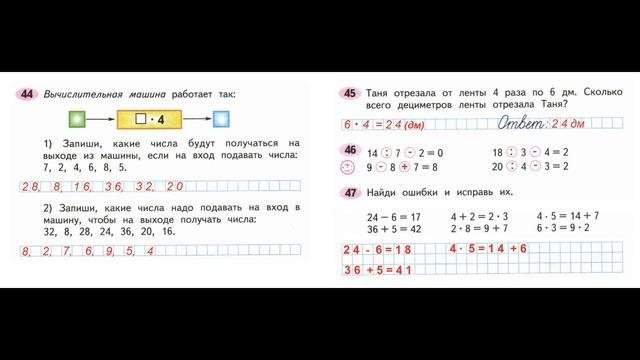 44 Вычислительная машина работает так:
□ · 4
1) Запиши, какие числа будут получаться на
выходе из машины, если на вход подавать числа:
7, 2, 4, 6, 8, 5.
28, 8, 16, 36, 32, 20
2) Запиши, какие числа надо подавать на вход в
машину, чтобы на выходе получать числа:
32, 8, 28, 24, 36, 20, 16.
8, 2, 7, 6, 9, 5, 4
45 Таня отрезала от ленты 4 раза по 6 дм. Сколько
всего дециметров ленты отрезала Таня?
6 · 4 = 24 (дм) Ответ: 24 дм
46
14 : 7 - 2 = 0 18 : 3 - 4 = 2
9 - 8 + 7 = 8 20 : 4 - 3 = 2
47 Найди ошибки и исправь их.
24 − 6 = 17 4 + 2 = 2 · 3 4 · 5 = 14 + 7
36 + 5 = 42 2 · 8 = 9 + 7 6 · 3 = 9 · 2
24 - 6 = 18 4 · 5 = 14 + 6
36 + 5 = 41